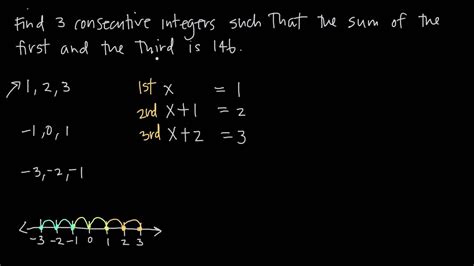 Find 3 consecutive integers such that the sum of the
first and the third is 146.
1, 2, 3
1st x = 1
2nd x+1 = 2
3rd x+2 = 3
-1, 0, 1
-3, -2, -1
-3 -2 -1 0 1 2 3